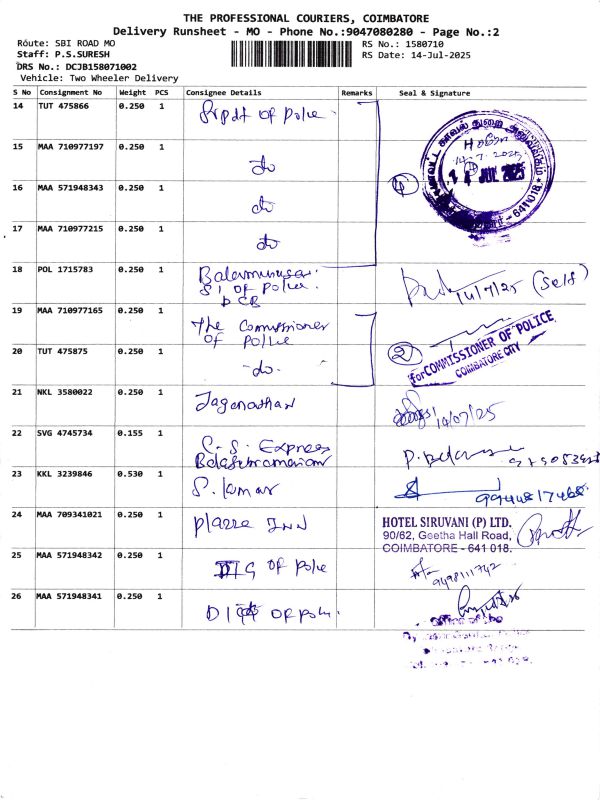 THE PROFESSIONAL COURIERS, COIMBATORE
Delivery Runsheet - MO - Phone No.:9047080280 - Page No.:2
Route: SBI ROAD MO
RS No.: 1580710
Staff: P.S.SURESH
RS Date: 14-Jul-2025
DRS No.: DCJB158071002
Vehicle: Two Wheeler Delivery
S No Consignment No Weight PCS Consignee Details Remarks Seal & Signature
14 TUT 475866 0.250 1 Srpdt of Police
15 MAA 710977197 0.250 1 do
16 MAA 571948343 0.250 1 do
④ 14 JUL 2025
641018
17 MAA 710977215 0.250 1 do
18 POL 1715783 0.250 1
SI OF Police
DCB
14/7/25 (Self)
19 MAA 710977165 0.250 1 The Commissioner
OF Police
20 TUT 475875 0.250 1 -do-
② For COMMISSIONER OF POLICE
COIMBATORE CITY
21 NKL 3580022 0.250 1 Jaganathan
14/07/25
22 SVG 4745734 0.155 1 C.S. Express
Balasubramaniam
23 KKL 3239846 0.530 1 S. kumar
24 MAA 709341021 0.250 1 plazze INN
HOTEL SIRUVANI (P) LTD.
90/62, Geetha Hall Road,
COIMBATORE - 641 018.
25 MAA 571948342 0.250 1 DIG OF Police
9498111742
26 MAA 571948341 0.250 1